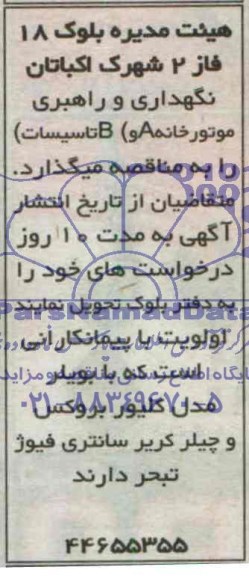 هیئت مدیره بلوک ۱۸
فاز ۲ شهرک اکباتان
نگهداری و راهبری
موتورخانهA و) Bتاسیسات)
را به مناقصه میگذارد.
متقاضیان از تاریخ انتشار
آگهی به مدت ۱۰ روز
درخواست های خود را
به دفتر بلوک تحویل نمایند
ParsNamadData
اولویت با پیمانکارانی
است که با بویلر
مدل کلیور بروکس
۰۲۱-۸۸۳۴۹۶۷۰-۵
و چیلر کریر سانتری فیوژ
تبحر دارند
۴۴۶۵۵۳۵۵